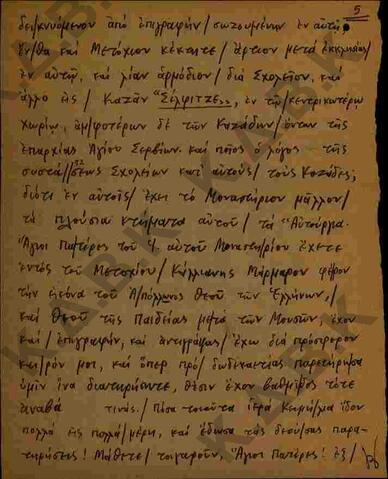 5
δεικνυόμενον ἀπό ἐπιγραφήν / σωζομένην ἐν αὐτῇ
ἔν/θα καί Μετόχιον κέκτητε / ἄρτιον μετά ἐκκλησίας
ἐν αὐτῷ, καί λίαν ἁρμόδιον / διά Σχολεῖον, καί
ἄλλο εἰς / Καζᾶν "Σέλφιτζε", ἐν τῷ / κεντρικωτέρῳ
χωρίῳ, ἀμ/φοτέρων δέ τῶν Καζάδων / ὄντων τῆς
ἐπαρχίας Ἁγίου Σερβίων. καί ποῖος ὁ λόγος τῆς
συστά//σεως Σχολείων κατ' αὐτούς / τούς Καζάδες;
διότι ἐν αὐτοῖς / ἔχει τό Μοναστήριον μᾶλλον /
τά πλούσια κτήματα αὐτοῦ / τά "Αὐτούργια.
Ἅγιοι Πατέρες τοῦ Ἱ. αὐτοῦ Μοναστη/ρίου ἔχετε
ἐντός τοῦ Μετοχίου / Κάλλιανης Μάρμαρον φέρον
τήν εἰκόνα τοῦ Ἀ/πόλλωνος θεοῦ τῶν Ἑλλήνων, /
καί θεοῦ τῆς Παιδείας μετά τῶν Μουσῶν, ἔχον
καί / ἐπιγραφήν, καί ἀντιγράψας / ἔχω διά πρόσφορον
και/ρόν μοι, καί ὅπερ πρό / δωδεκαετίας παρετήρησα
ὑμῖν ἵνα διατηρήσητε, θέσιν ἔχον βαθμῖδος τότε
ἀναβά τινός. / Πόσα τοιαῦτα ἱερά Κειμή/λια ἴδον
πολλά εἰς πολλά / μέρη, καί ἔδωσα τάς δεού/σας παρα-
τηρήσεις! Μάθετε / τοιγαροῦν, Ἅγιοι Πατέρες! ἐξ /